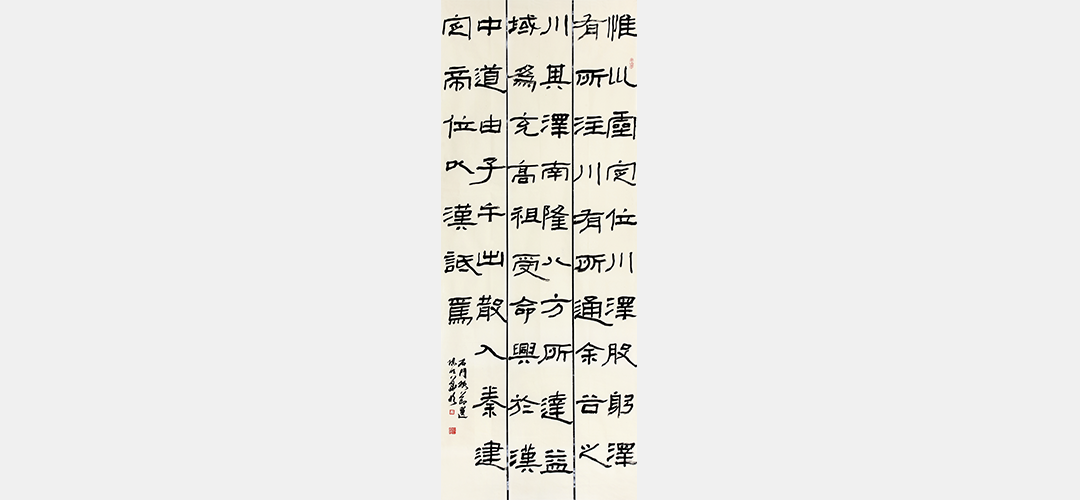 惟巛靈定位川澤股躬澤
有所注川有所通余谷之
川其澤南隆八方所達益
域爲充高祖受命興於漢
中道由子午出散入秦建
定帝位以漢詆焉
石門頌節選